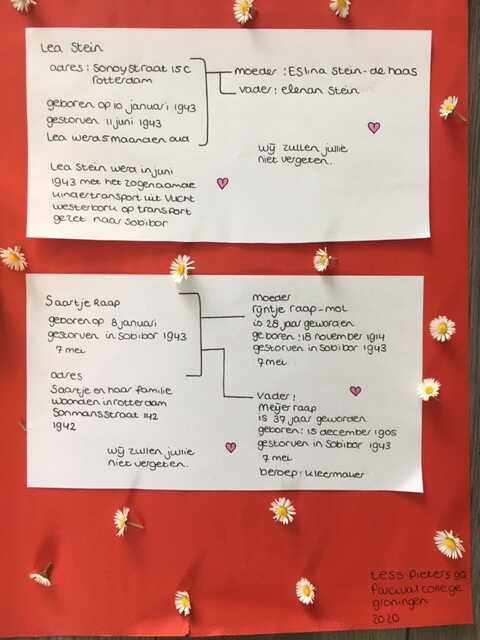 Lea Stein
adres : Sonoystraat 15C
Rotterdam
geboren op 10 januari 1943
gestorven 11 juni 1943
Lea werd 5 maanden oud
moeder : Estina Stein-de haas
vader : elenan Stein
Lea Stein werd in juni
1943 met het zogenaamde
kindertransport uit Vucht
westerbork op transport
gezet naar Sobibor
wij zullen jullie
niet vergeten.
Saartje Raap
geboren op 8 januari
gestorven in Sobibor 1943
7 mei
adres
Saartje en haar familie
woonden in rotterdam
Sonmansstraat 142
1942
wij zullen jullie
niet vergeten.
moeder
rijntje raap-mol
is 28 jaar geworden
geboren : 18 november 1914
gestorven in Sobibor 1943
7 mei
vader :
Meijer raap
is 37 jaar geworden
geboren : 15 december 1905
gestorven in Sobibor 1943
7 mei
beroep : kleermaker
tess Pieters
Parcival college
groningen
2020